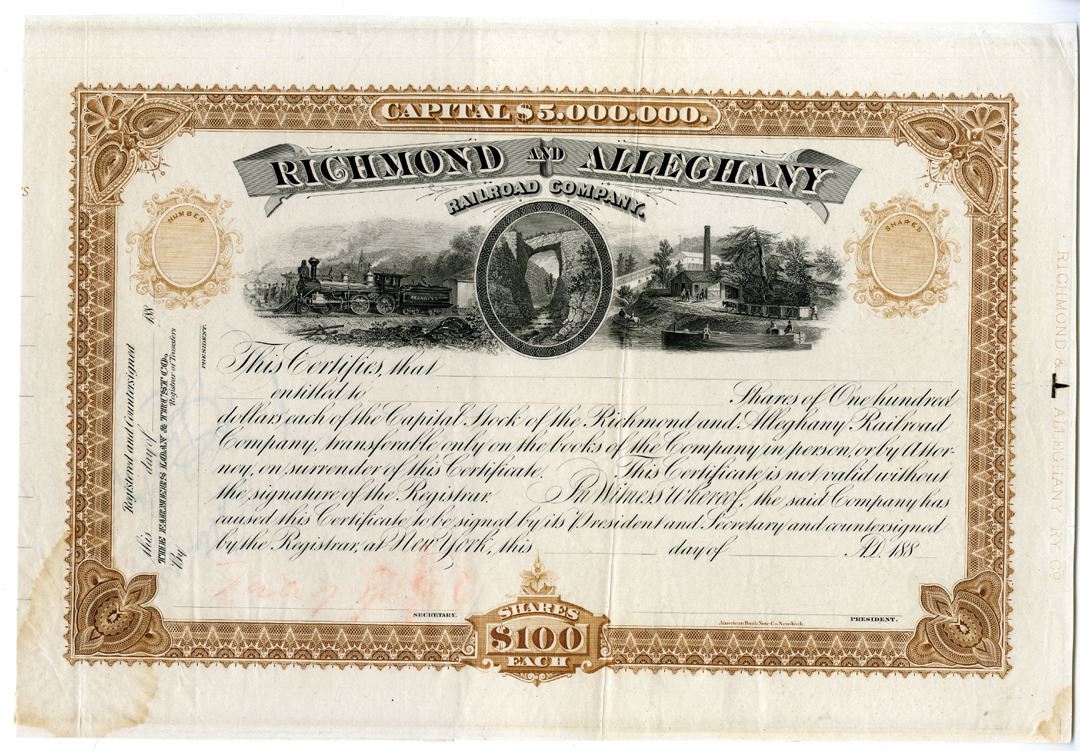 CAPITAL $5.000.000.
RICHMOND AND ALLEGHANY
RAILROAD COMPANY.
NUMBER
SHARES
This Certifies, that
entitled to Shares of One hundred
dollars each of the Capital Stock of the Richmond and Alleghany Railroad
Company, transferable only on the books of the Company in person, or by Attor-
ney, on surrender of this Certificate. This Certificate is not valid without
the signature of the Registrar. In Witness Whereof, the said Company has
caused this Certificate to be signed by its President and Secretary and countersigned
by the Registrar, at New York, this day of A.D. 188
SECRETARY.
American Bank Note Co. New York.
PRESIDENT.
SHARES
$100
EACH
Registered and Countersigned
this day of 188
THE FARMERS LOAN & TRUST CO.
Registrar of Transfers
By
PRESIDENT.
RICHMOND & ALLEGHANY RY. CO